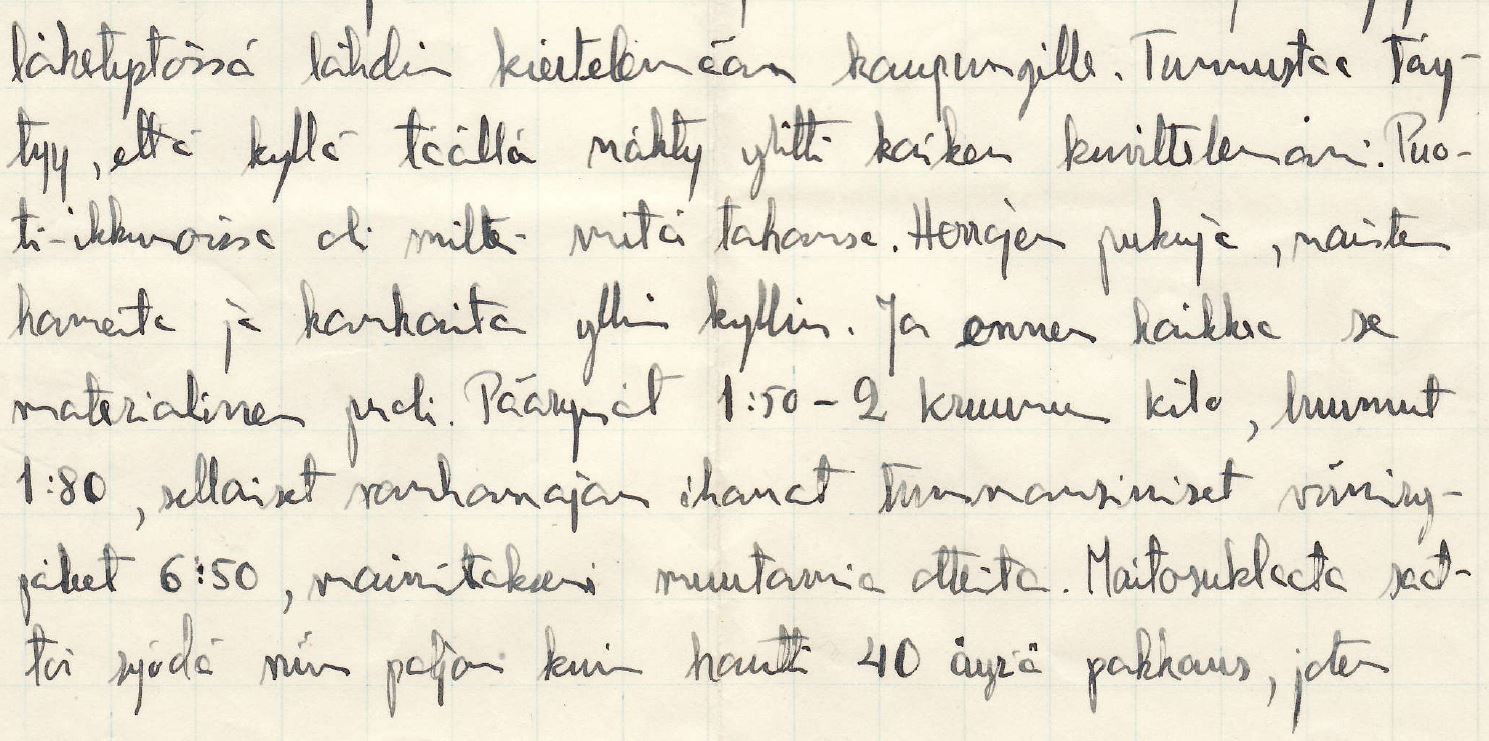 lähetystössä lähdin kiertelemään kaupungille. Tunnustaa täy-
tyy, että kyllä täällä nähty ylitti kaiken kuvittelemani. Puo-
ti-ikkunoissa oli miltei mitä tahansa. Herrojen pukuja, naisten
hameita ja kankaita yllin kyllin. Ja ennen kaikkea se
materialinen puoli. Päärynät 1:50-2 kruunun kilo, luumut
1:80, sellaiset rauhanajan ihanat tummansiniset viiniry-
päleet 6:50, mainitakseni muutamia otteita. Maitosuklaata saat-
toi syödä niin paljon kuin haultti 40 äyriä pakkaus, joten